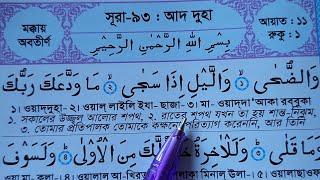 মক্কায়
অবতীর্ণ
সূরা-৯৩ : আদ দুহা
আয়াত : ১১
রুকু : ১
بِسْمِ اللهِ الرَّحْمٰنِ الرَّحِيْمِ
وَالضُّحٰى ۝١ وَالَّيْلِ اِذَا سَجٰى ۝٢ مَا وَدَّعَكَ رَبُّكَ
১। ওয়াদ্দুহা- ২। ওয়াল্ লাইলি ইযা- ছাজা- ৩। মা- ওয়াদ্দা'আকা রব্বুকা
১. সকালের উজ্জ্বল আলোর শপথ, ২. রাতের শপথ যখন তা হয় শান্ত-নিঝুম,
৩. তোমার প্রতিপালক তোমাকে কক্ষনো পরিত্যাগ করেননি, আর তিনি
وَمَا قَلٰى ۝٣ وَلَلْاٰخِرَةُ خَيْرٌ لَّكَ مِنَ الْاُوْلٰى ۝٤ وَلَسَوْفَ